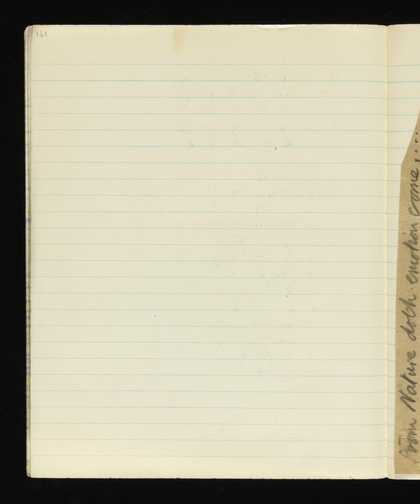 161
From Nature doth emotion come....